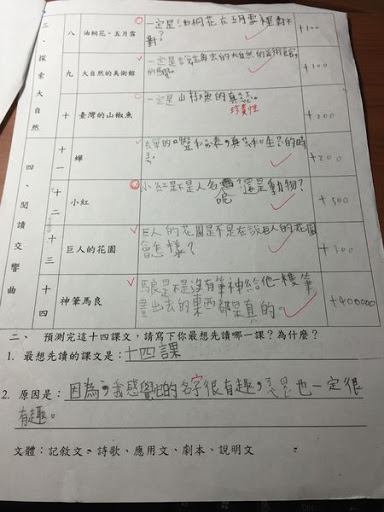 三、探索大自然
八 油桐花•五月雪 一定是油桐花在五月雪裡對不對? +100
九 大自然的美術館 一定是去大自然的美術館的 +100
十 臺灣的山椒魚 一定是山椒魚的 珍貴性 +200
四、閱讀交響曲
十一 蟬 +200
十二 小紅 小紅是不是人名呢還是動物? +300
十三 巨人的花園 巨人的花園是不是在說巨人的花園會怎樣?
十四 神筆馬良 馬良是不是沒有筆神給他一枝筆畫出去的東西都是真的。 +400000
二、 預測完這十四課文,請寫下你最想先讀哪一課?為什麼?
1. 最想先讀的課文是:十四課
2. 原因是:因為,我感覺他的名字很有趣,也一定很
有趣。
文體:記敘文、詩歌、應用文、劇本、說明文